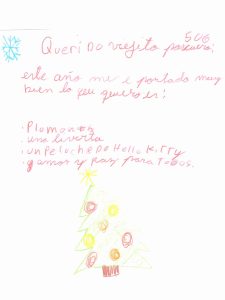 506
Querido viejito pascuero:
este año me e portado muy
bien lo que quero es:
· Plumones
· una liverta
· un Peluche De Hello Kitty
· y amor y paz para todos.